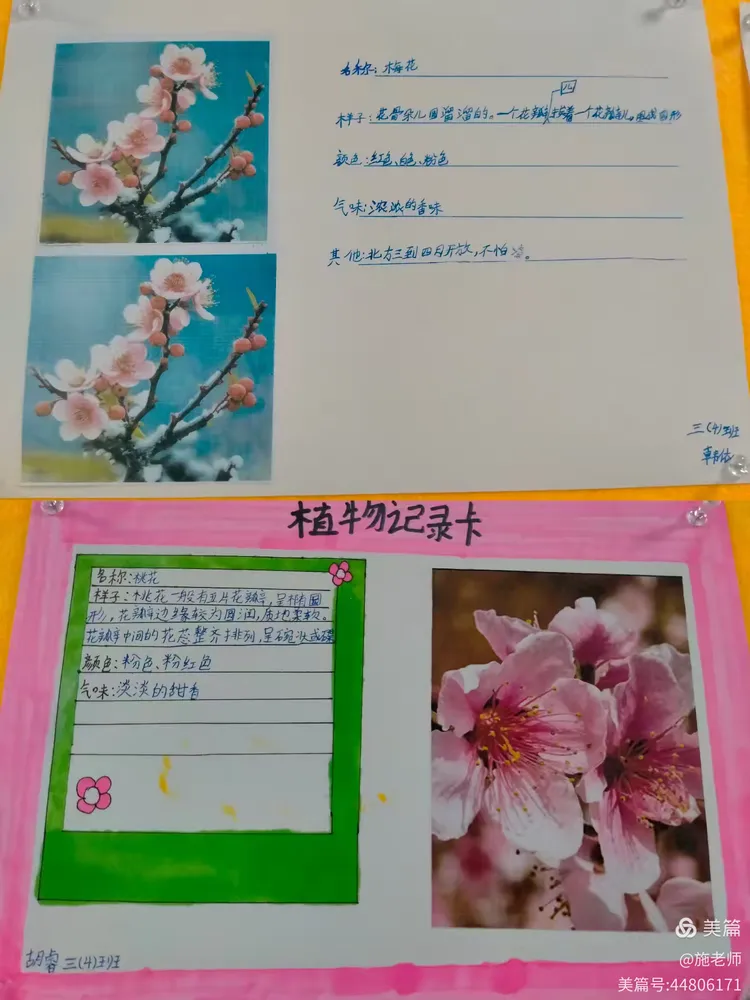 名称:梅花
样子:花骨朵儿圆溜溜的。一个花瓣挨着一个花瓣儿,
四
颜色:红色、白色、粉色
气味:浓浓的香味
其他:北方三到四月开放,不怕冷。
三(4)班
韩依
植物记录卡
名称:桃花
样子:桃花一般有五片花瓣,呈椭圆
形,花瓣边缘较为圆润,质地柔软。
花瓣中间的花蕊整齐排列,呈碗状或碟
颜色:粉色、粉红色
气味:淡淡的甜香
胡睿 三(4)班
美篇
@施老师
美篇号:44806171